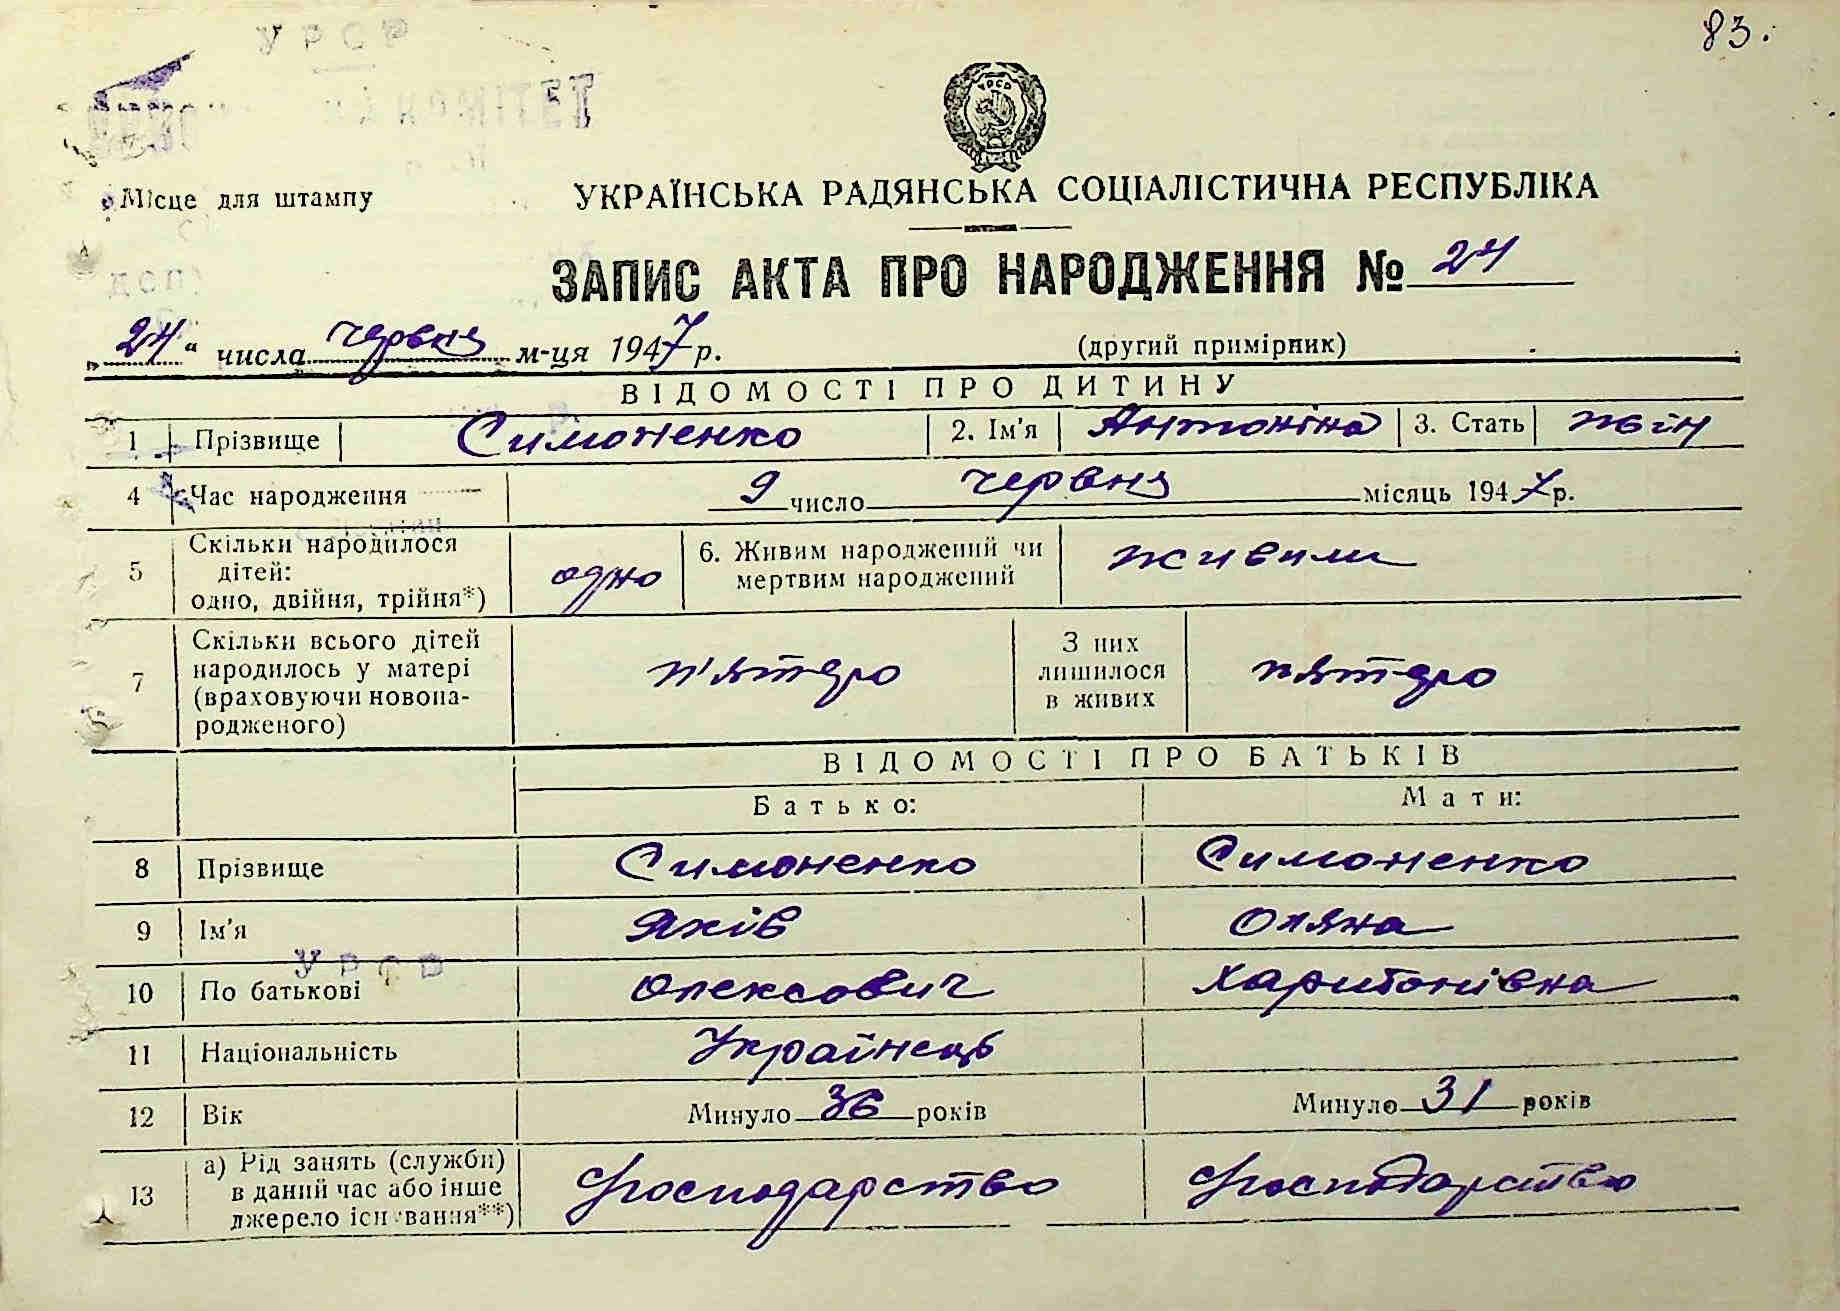 83.
УРСР
КОМІТЕТ
Місце для штампу
УКРАЇНСЬКА РАДЯНСЬКА СОЦІАЛІСТИЧНА РЕСПУБЛІКА
ЗАПИС АКТА ПРО НАРОДЖЕННЯ № 24
„24“ числа червня м-ця 1947 р. (другий примірник)
ВІДОМОСТІ ПРО ДИТИНУ
1 Прізвище Симоненко 2. Ім'я Антоніна 3. Стать жін
4 Час народження 9 число червня місяць 1947 р.
5 Скільки народилося дітей: одно, двійня, трійня*) одно 6. Живим народжений чи мертвим народжений живими
7 Скільки всього дітей народилось у матері (враховуючи новонародженого) п'ятеро З них лишилося в живих пятеро
ВІДОМОСТІ ПРО БАТЬКІВ
Батько: Мати:
8 Прізвище Симоненко Симоненко
9 Ім'я Яків Оляна
УРСР
10 По батькові Олексович Харитонівна
11 Національність Українець
12 Вік Минуло 36 років Минуло 31 років
13 а) Рід занять (служби) в даний час або інше джерело існування**) Господарство Господарство